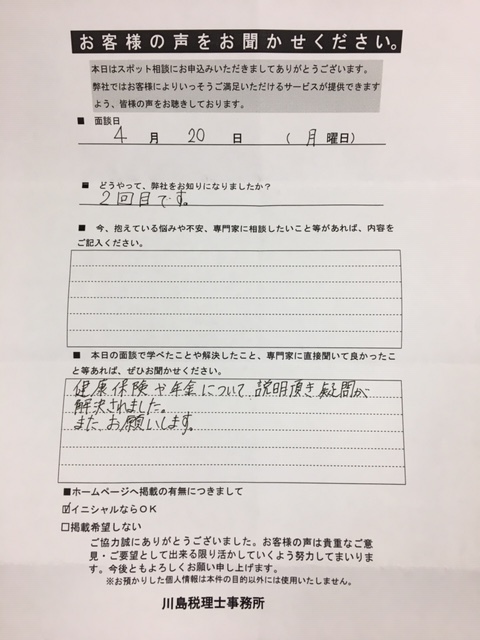 お客様の声をお聞かせください。
本日はスポット相談にお申込みいただきましてありがとうございます。
弊社ではお客様によりいっそうご満足いただけるサービスが提供できます
よう、皆様の声をお聴きしております。
■ 面談日
4 月 20 日 (月 曜日)
■ どうやって、弊社をお知りになりましたか？
2回目です。
■ 今、抱えている悩みや不安、専門家に相談したいこと等があれば、内容を
ご記入ください。
■ 本日の面談で学べたことや解決したこと、専門家に直接聞いて良かったこ
と等あれば、ぜひお聞かせください。
健康保険や年金について説明頂き疑問が
解決されました。
またお願いします。
■ホームページへ掲載の有無につきまして
☑イニシャルならOK
□掲載希望しない
ご協力誠にありがとうございました。お客様の声は貴重なご意
見・ご要望として出来る限り活かしていくよう努力してまいりま
す。今後ともよろしくお願い申し上げます。
※お預かりした個人情報は本件の目的以外には使用いたしません。
川島税理士事務所